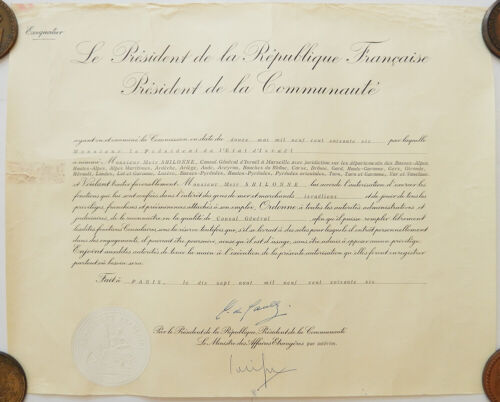 Exequatur
Le Président de la République Française
Président de la Communauté
ayant vu et examiné la Commission en date du douze mai mil neuf cent soixante six par laquelle
Monsieur le Président de l'Etat d'Israël
a nommé Monsieur Meir SHILONNE, Consul Général d'Israël à Marseille avec juridiction sur les départements des Basses-Alpes,
Hautes-Alpes, Alpes Maritimes, Ardèche, Ariège, Aude, Aveyron, Bouches du Rhône, Corse, Drôme, Gard, Haute-Garonne, Gers, Gironde,
Hérault, Landes, Lot et Garonne, Lozère, Basses-Pyrénées, Hautes-Pyrénées, Pyrénées orientales, Tarn, Tarn et Garonne, Var et Vaucluse
et Voulant traiter favorablement Monsieur Meir SHILONNE lui accorde l'autorisation d'exercer les
fonctions qui lui sont confiées dans l'intérêt des gens de mer et marchands israéliens et de jouir de tous les
privilèges, franchises et prérogatives attachés à son emploi, Ordonne à toutes les autorités administratives et
judiciaires, de le reconnaître en la qualité de Consul Général afin qu'il puisse remplir librement
les dites fonctions Consulaires, sous la réserve toutefois que, s'il se livrait à des actes pour lesquels il serait personnellement
dans des engagements, il pourrait être poursuivi, ainsi qu'il est d'usage, sans être admis à opposer aucun privilège.
Enjoint aux dites autorités de tenir la main à l'exécution de la présente autorisation qu'elles feront enregistrer
partout où besoin sera.
Fait à PARIS, le dix sept mai mil neuf cent soixante six
Par le Président de la République, Président de la Communauté
Le Ministre des Affaires Etrangères par intérim.